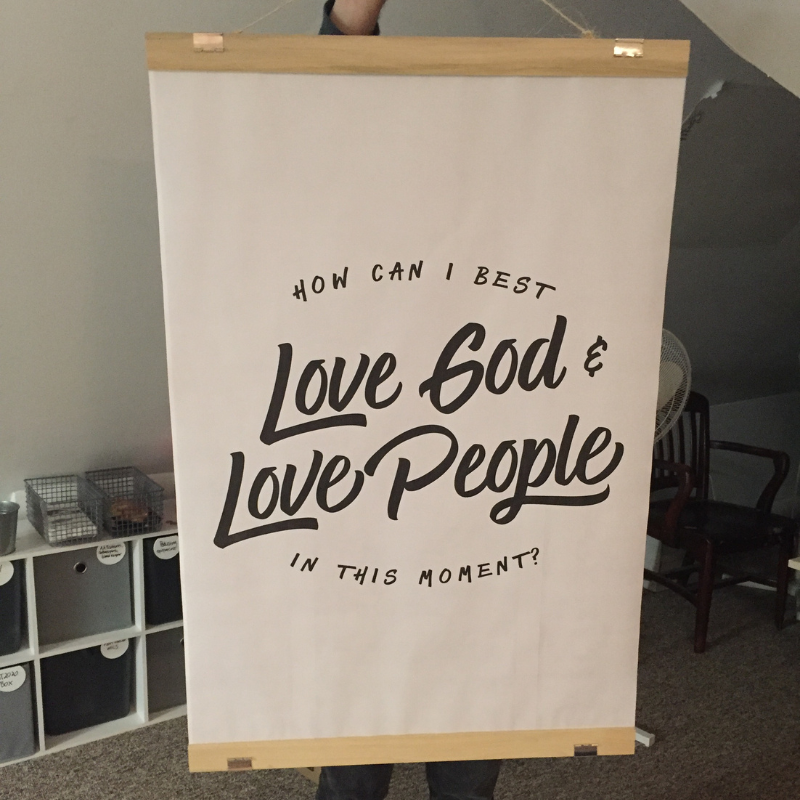 HOW CAN I BEST
Love God &
Love People
IN THIS MOMENT?